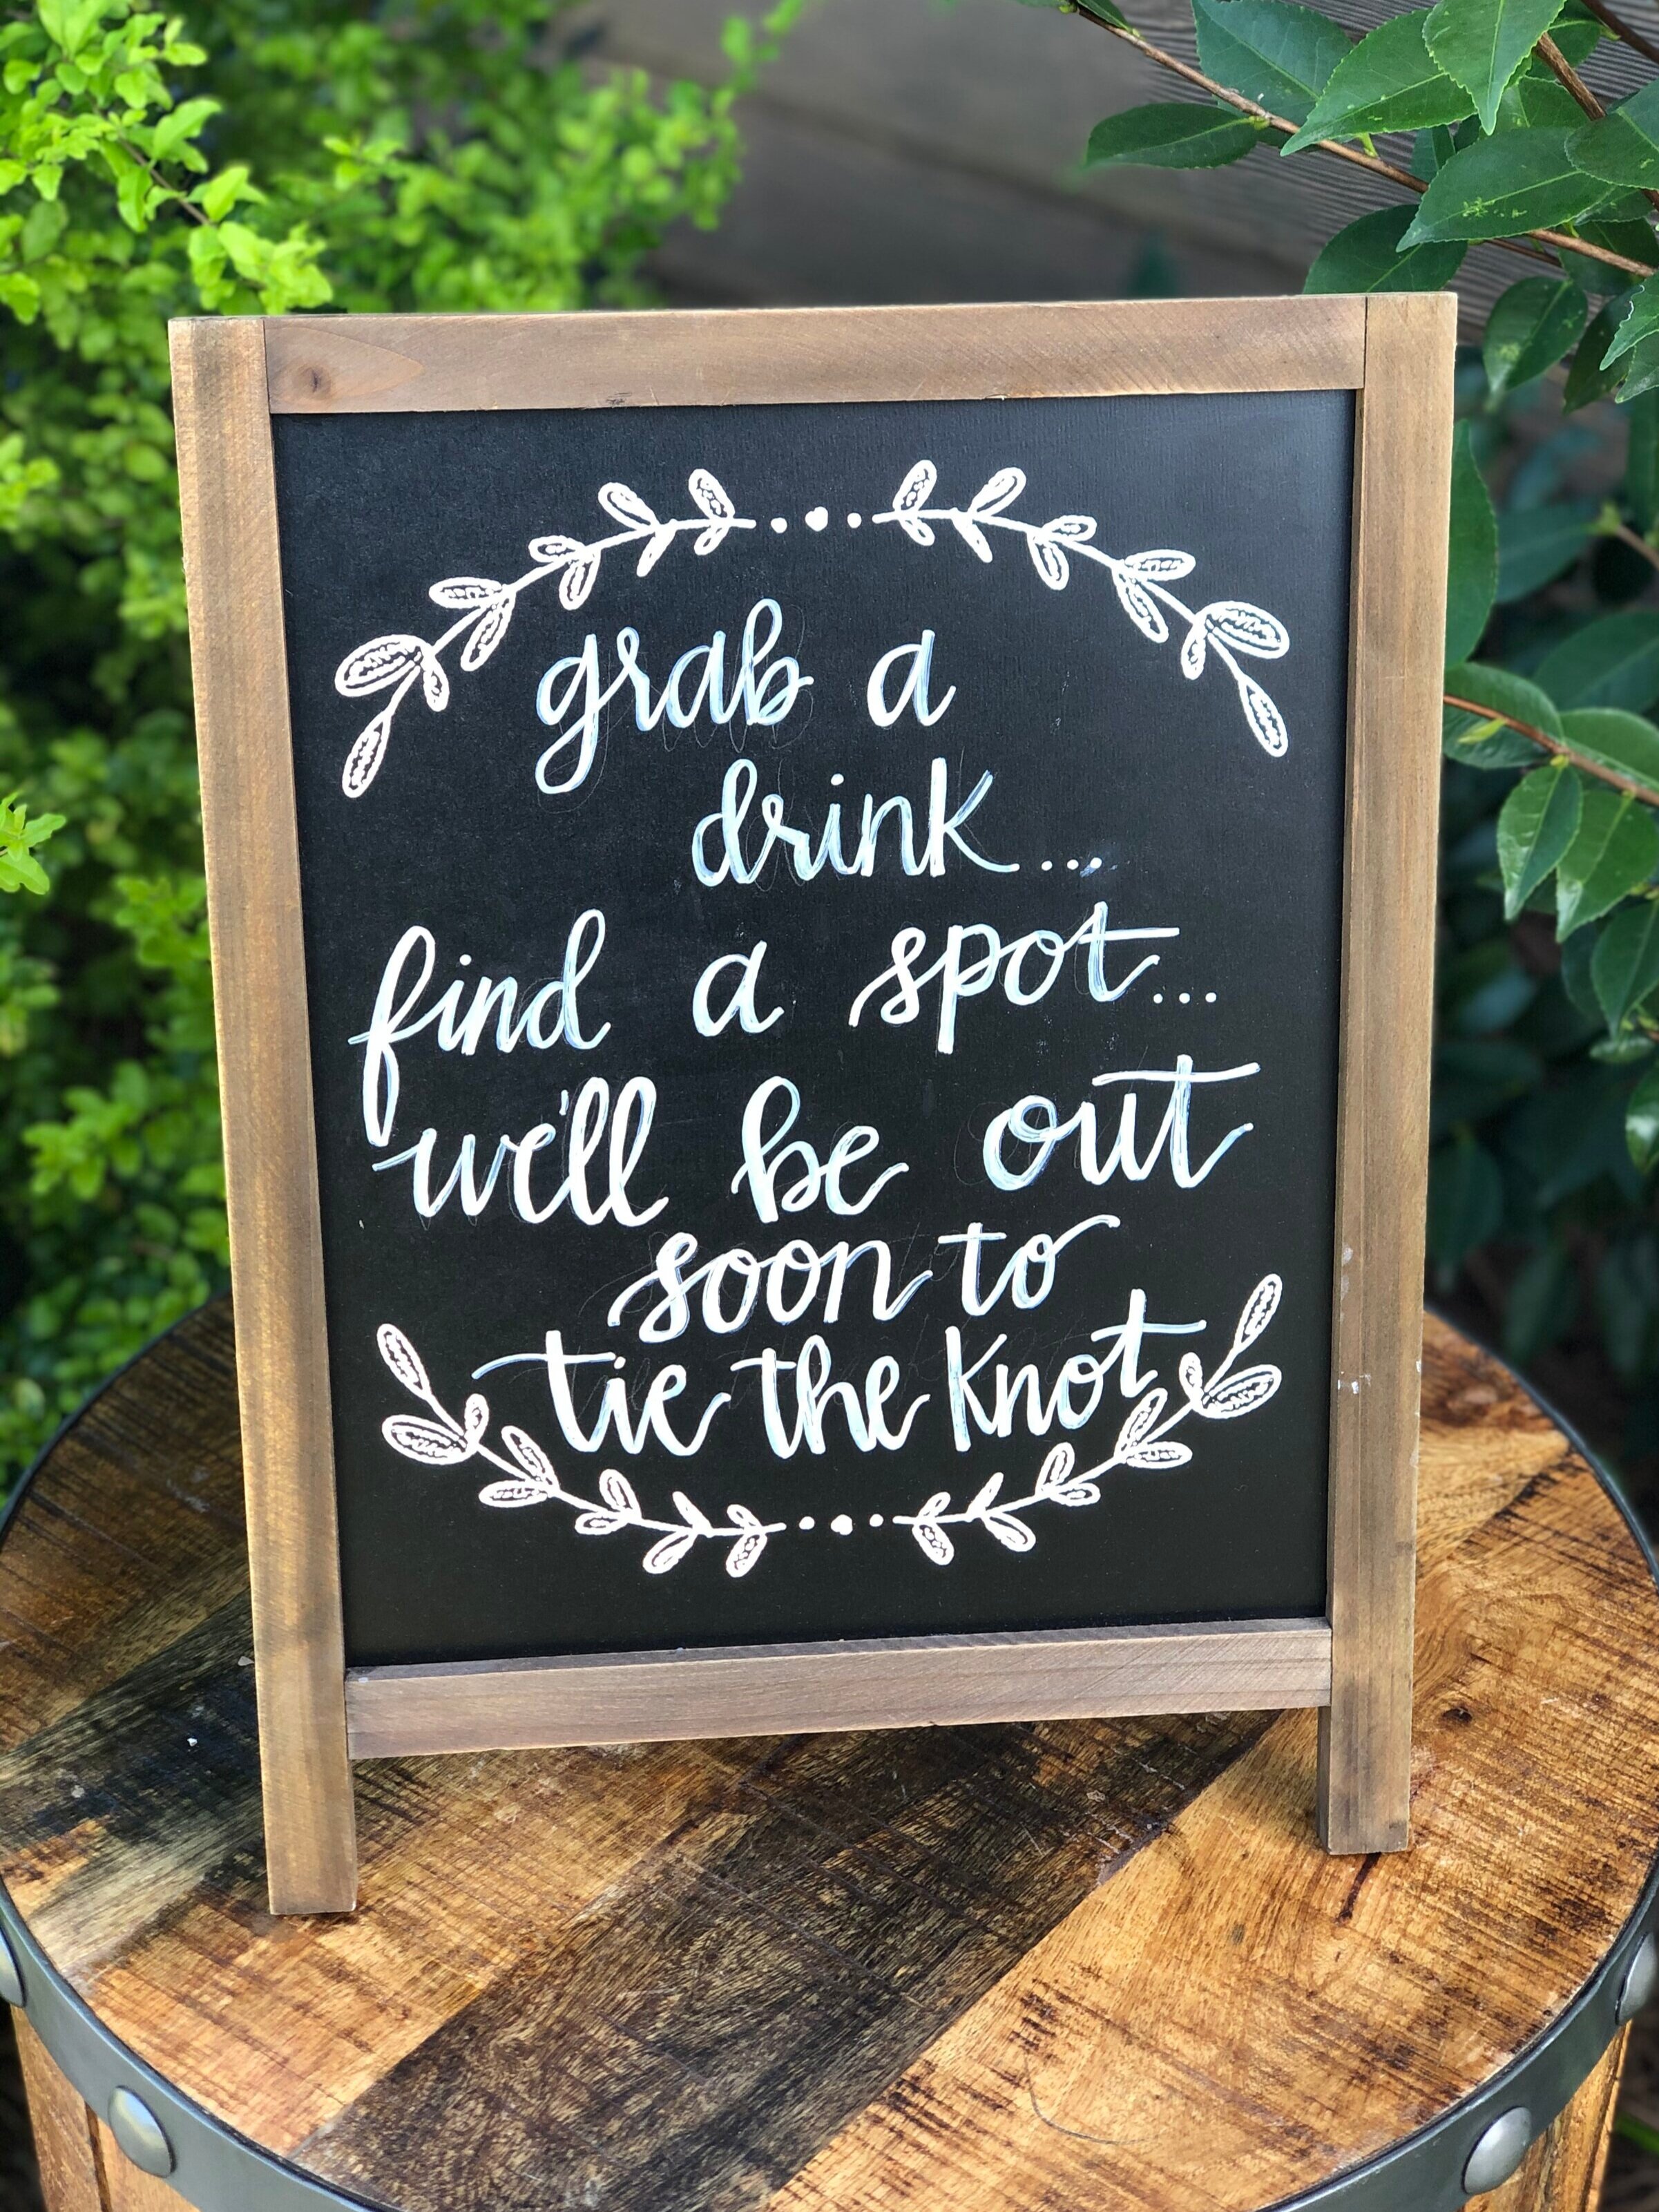 grab a
drink...
find a spot...
we'll be out
soon to
tie the knot